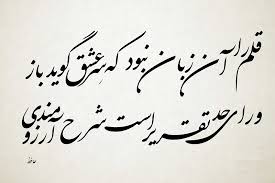 قلم را آن زبان نبود که سر عشق گوید باز
ورای حد تقریر است شرح آرزومندی
حافظ